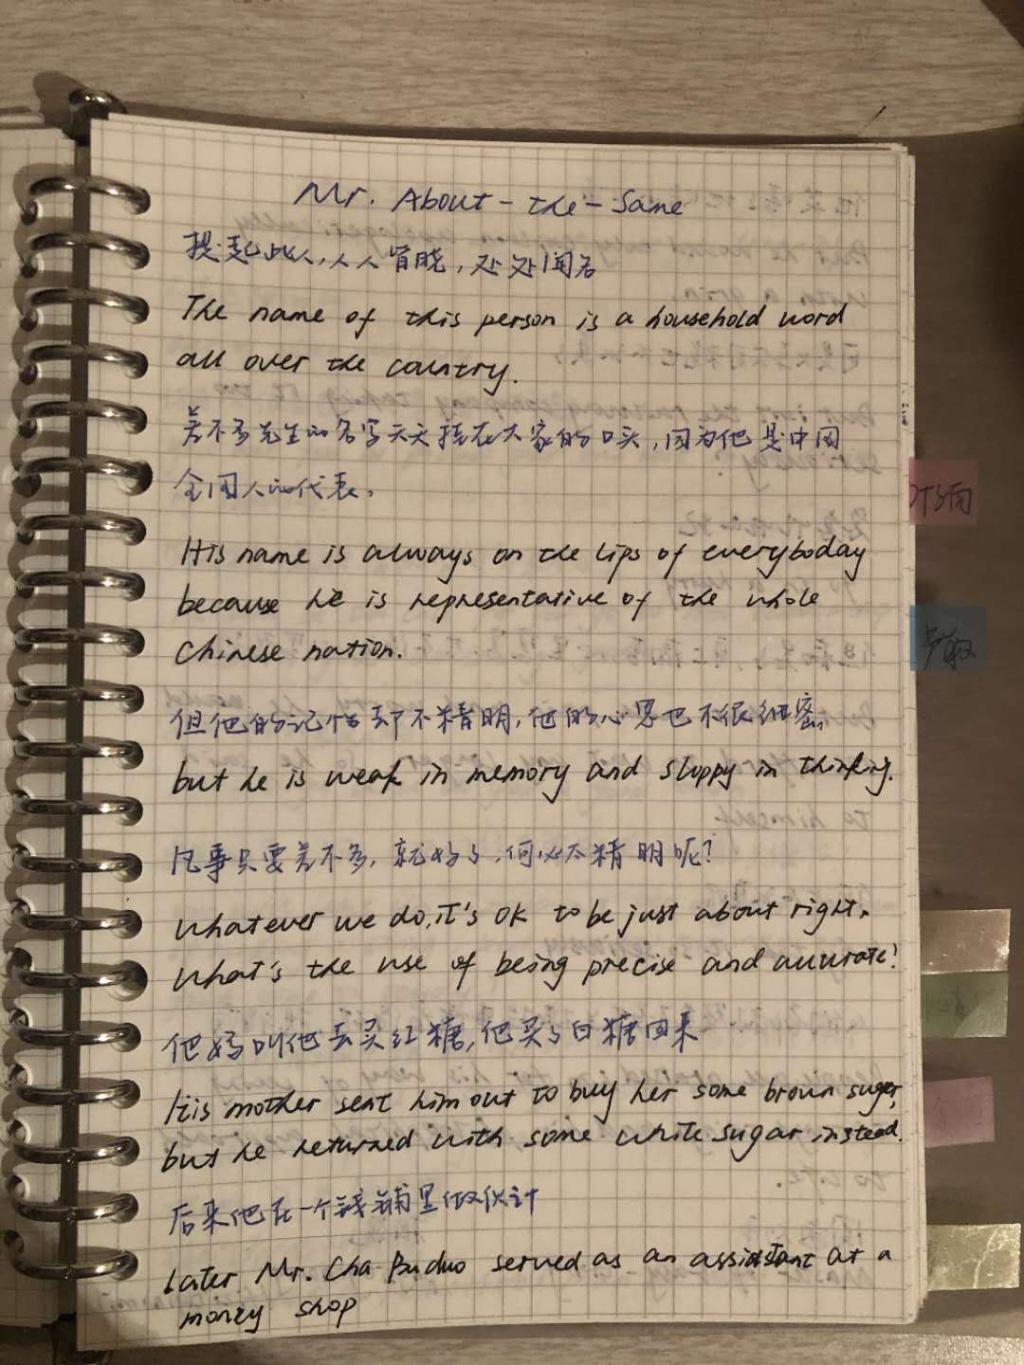 Mr. About-the-Same
提起此人,人人皆晓,处处闻名
The name of this person is a household word
all over the country.
差不多先生的名字天天挂在大家的口头,因为他是中国
全国人的代表。
His name is always on the lips of everyboday
because he is representative of the whole
Chinese nation.
但他的记性却不精明,他的心思也不很细密
but he is weak in memory and sloppy in thinking.
凡事只要差不多,就好了,何必太精明呢?
whatever we do,it's OK to be just about right.
what's the use of being precise and accurate?
他妈叫他去买红糖,他买了白糖回来
His mother sent him out to buy her some brown sugar,
but he returned with some white sugar instead.
后来他在一个钱铺里做伙计
Later Mr. Cha Buduo served as an assistant at a
money shop